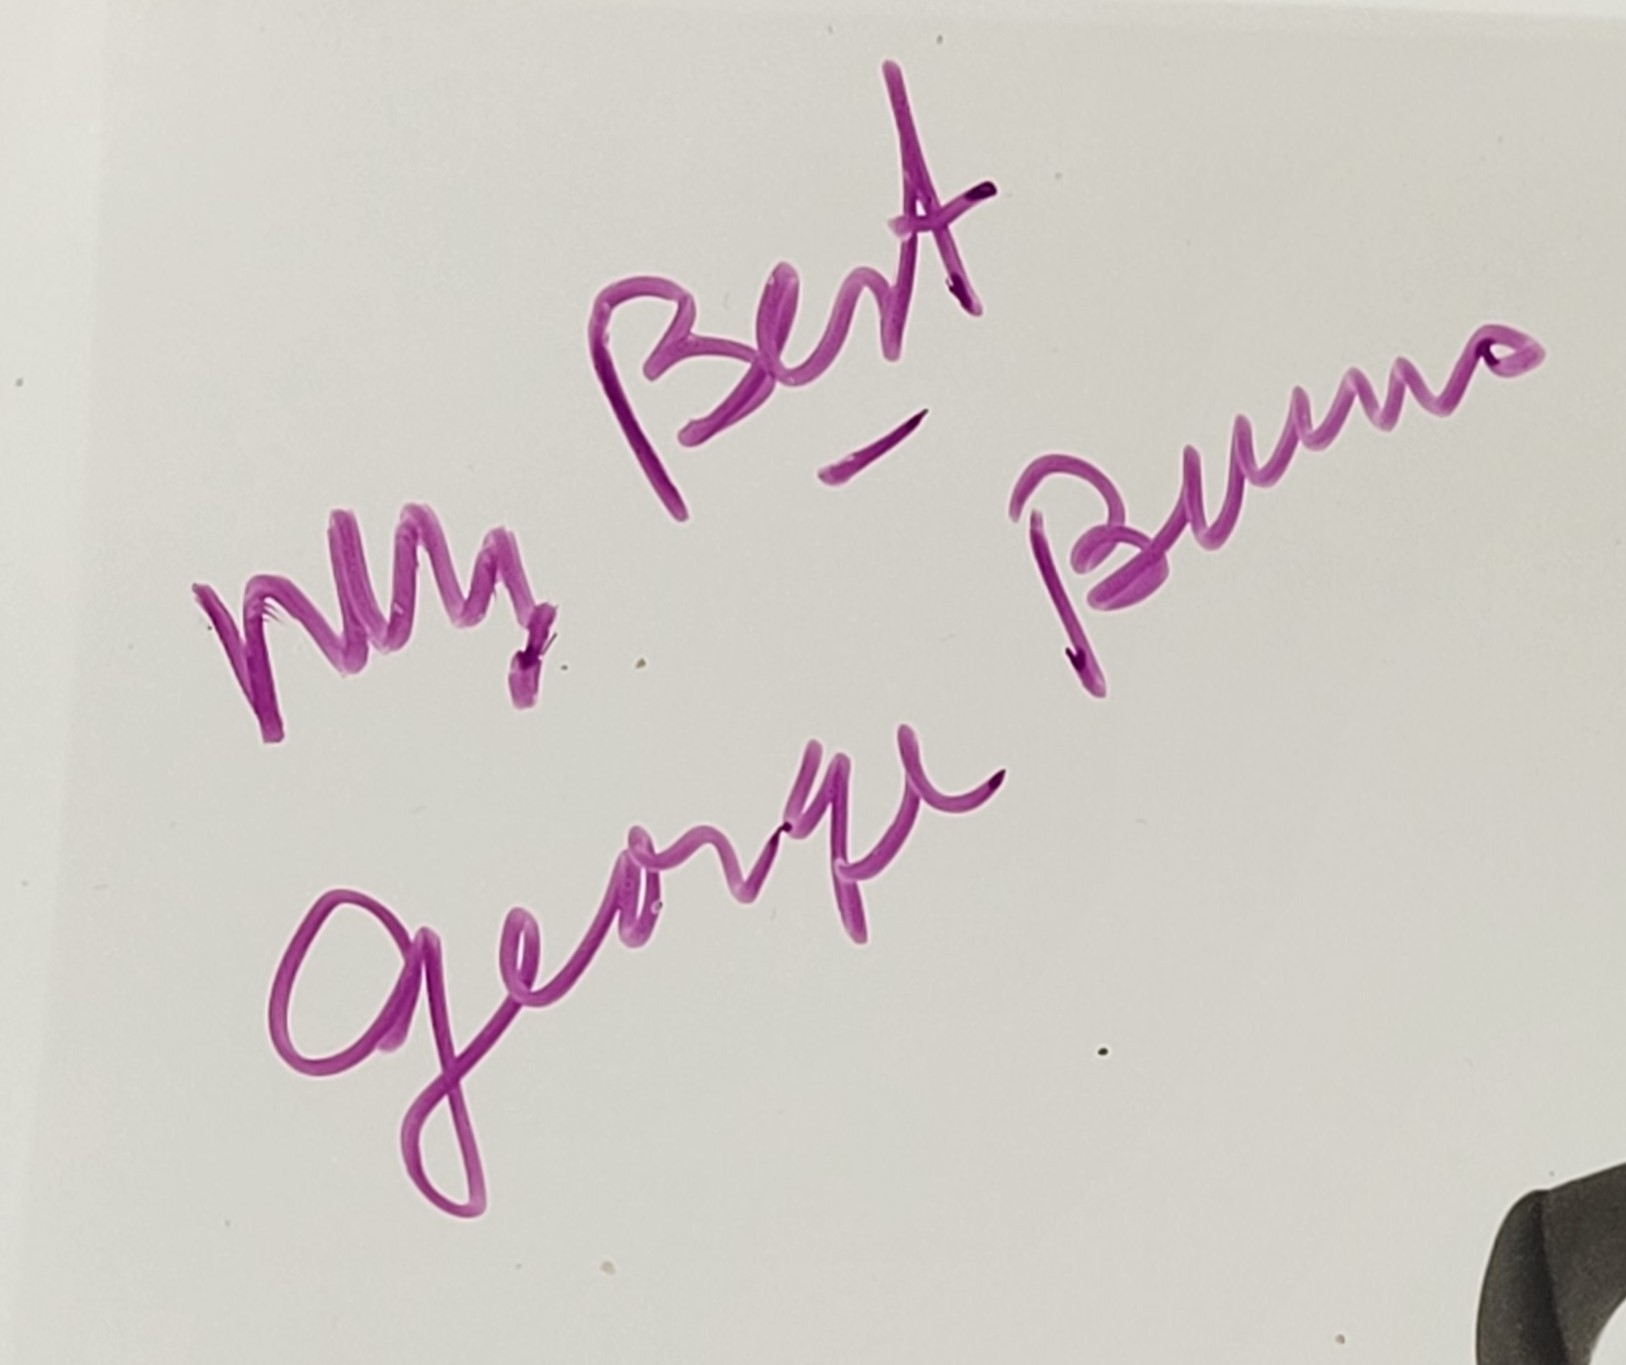 My Best -
George Burns